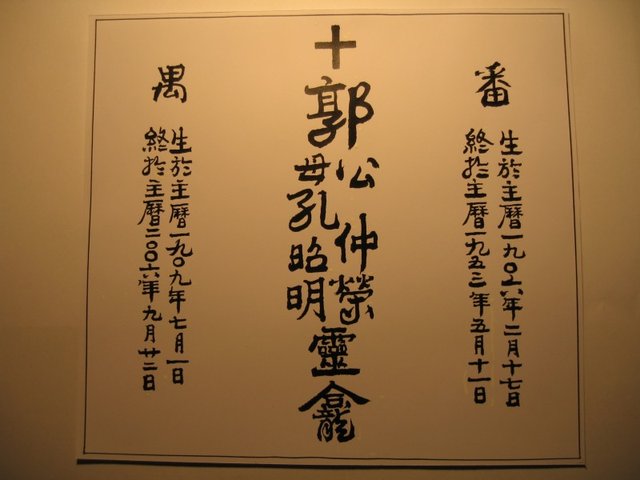 番
生於主曆一九〇六年二月十七日
終於主曆一九五三年五月十一日
十
郭
公仲榮
母孔昭明
靈龕
禺
生於主曆一九〇九年七月一日
終於主曆二〇〇六年九月廿二日